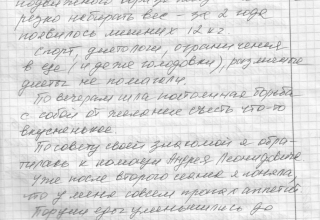 подвижного образа
резко набирать вес - за 2 года
появилось лишних 12 кг
Спорт, диетологи, ограничения
в еде (и даже голодовки), различные
диеты не помогали.
По вечерам шла постоянная борьба
с собой от желание съесть что-то
вкусненькое.
По совету своей знакомой я обра-
тилась к помощи Андрея Леонидовича
Уже после второго сеанса я поняла,
что у меня совсем пропал аппетит
Порции еды уменьшились до